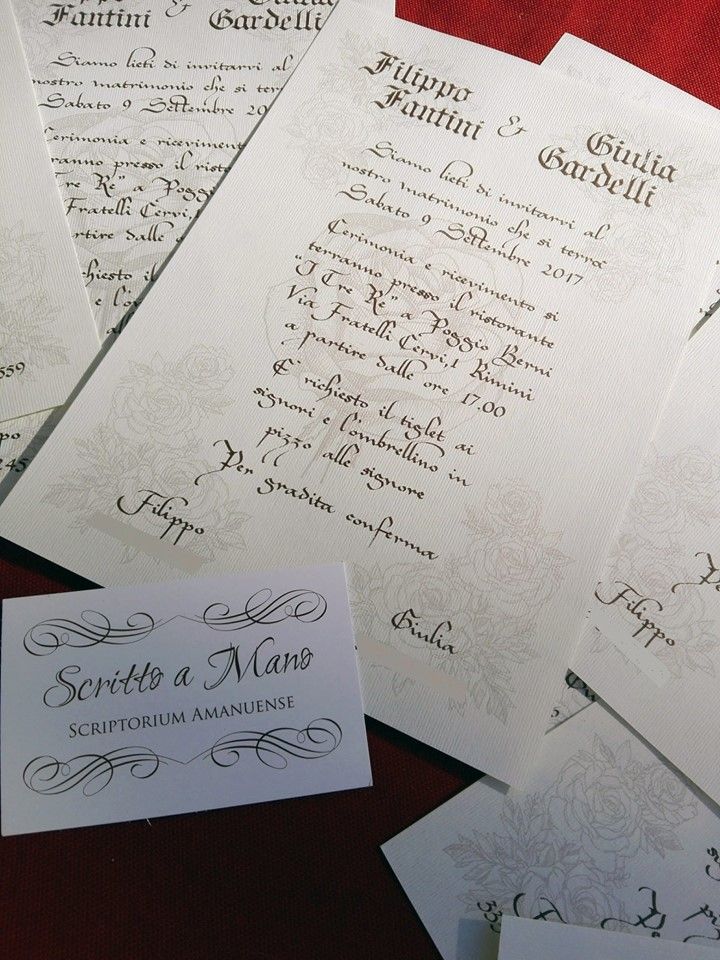 Filippo
Fantini & Giulia
Gardelli
Siamo lieti di invitarvi al
nostro matrimonio che si terrà
Sabato 9 Settembre 2017
Cerimonia e ricevimento si
terranno presso il ristorante
"I Tre Re" a Poggio Berni
Via Fratelli Cervi,1 Rimini
a partire dalle ore 17.00
E' richiesto il tiglet ai
signori e l'ombrellino in
pizzo alle signore
Per gradita conferma
Filippo
Giulia
Scritto a Mano
SCRIPTORIUM AMANUENSE
Fantini & Giulia
Gardelli
Siamo lieti di invitarvi al
nostro matrimonio che si
Sabato 9 Settembre 20
Cerimonia e ricevimento
presso il
Tre Re" a Poggio
Fratelli Cervi,1
dalle
il
e
559
245
Filippo